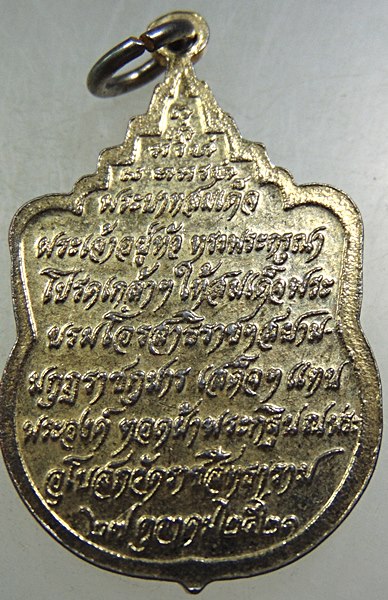 พระบาทสมเด็จ
พระเจ้าอยู่หัว ทรงพระกรุณา
โปรดเกล้าฯ ให้สมเด็จพระ
บรมโอรสาธิราชฯ สยาม-
มกุฎราชกุมาร เสด็จฯ แทน
พระองค์ ทอดผ้าพระกฐิน ณ พระ
อุโบสถวัดราชสิทธาราม
๒๗ ตุลาคม ๒๕๒๑